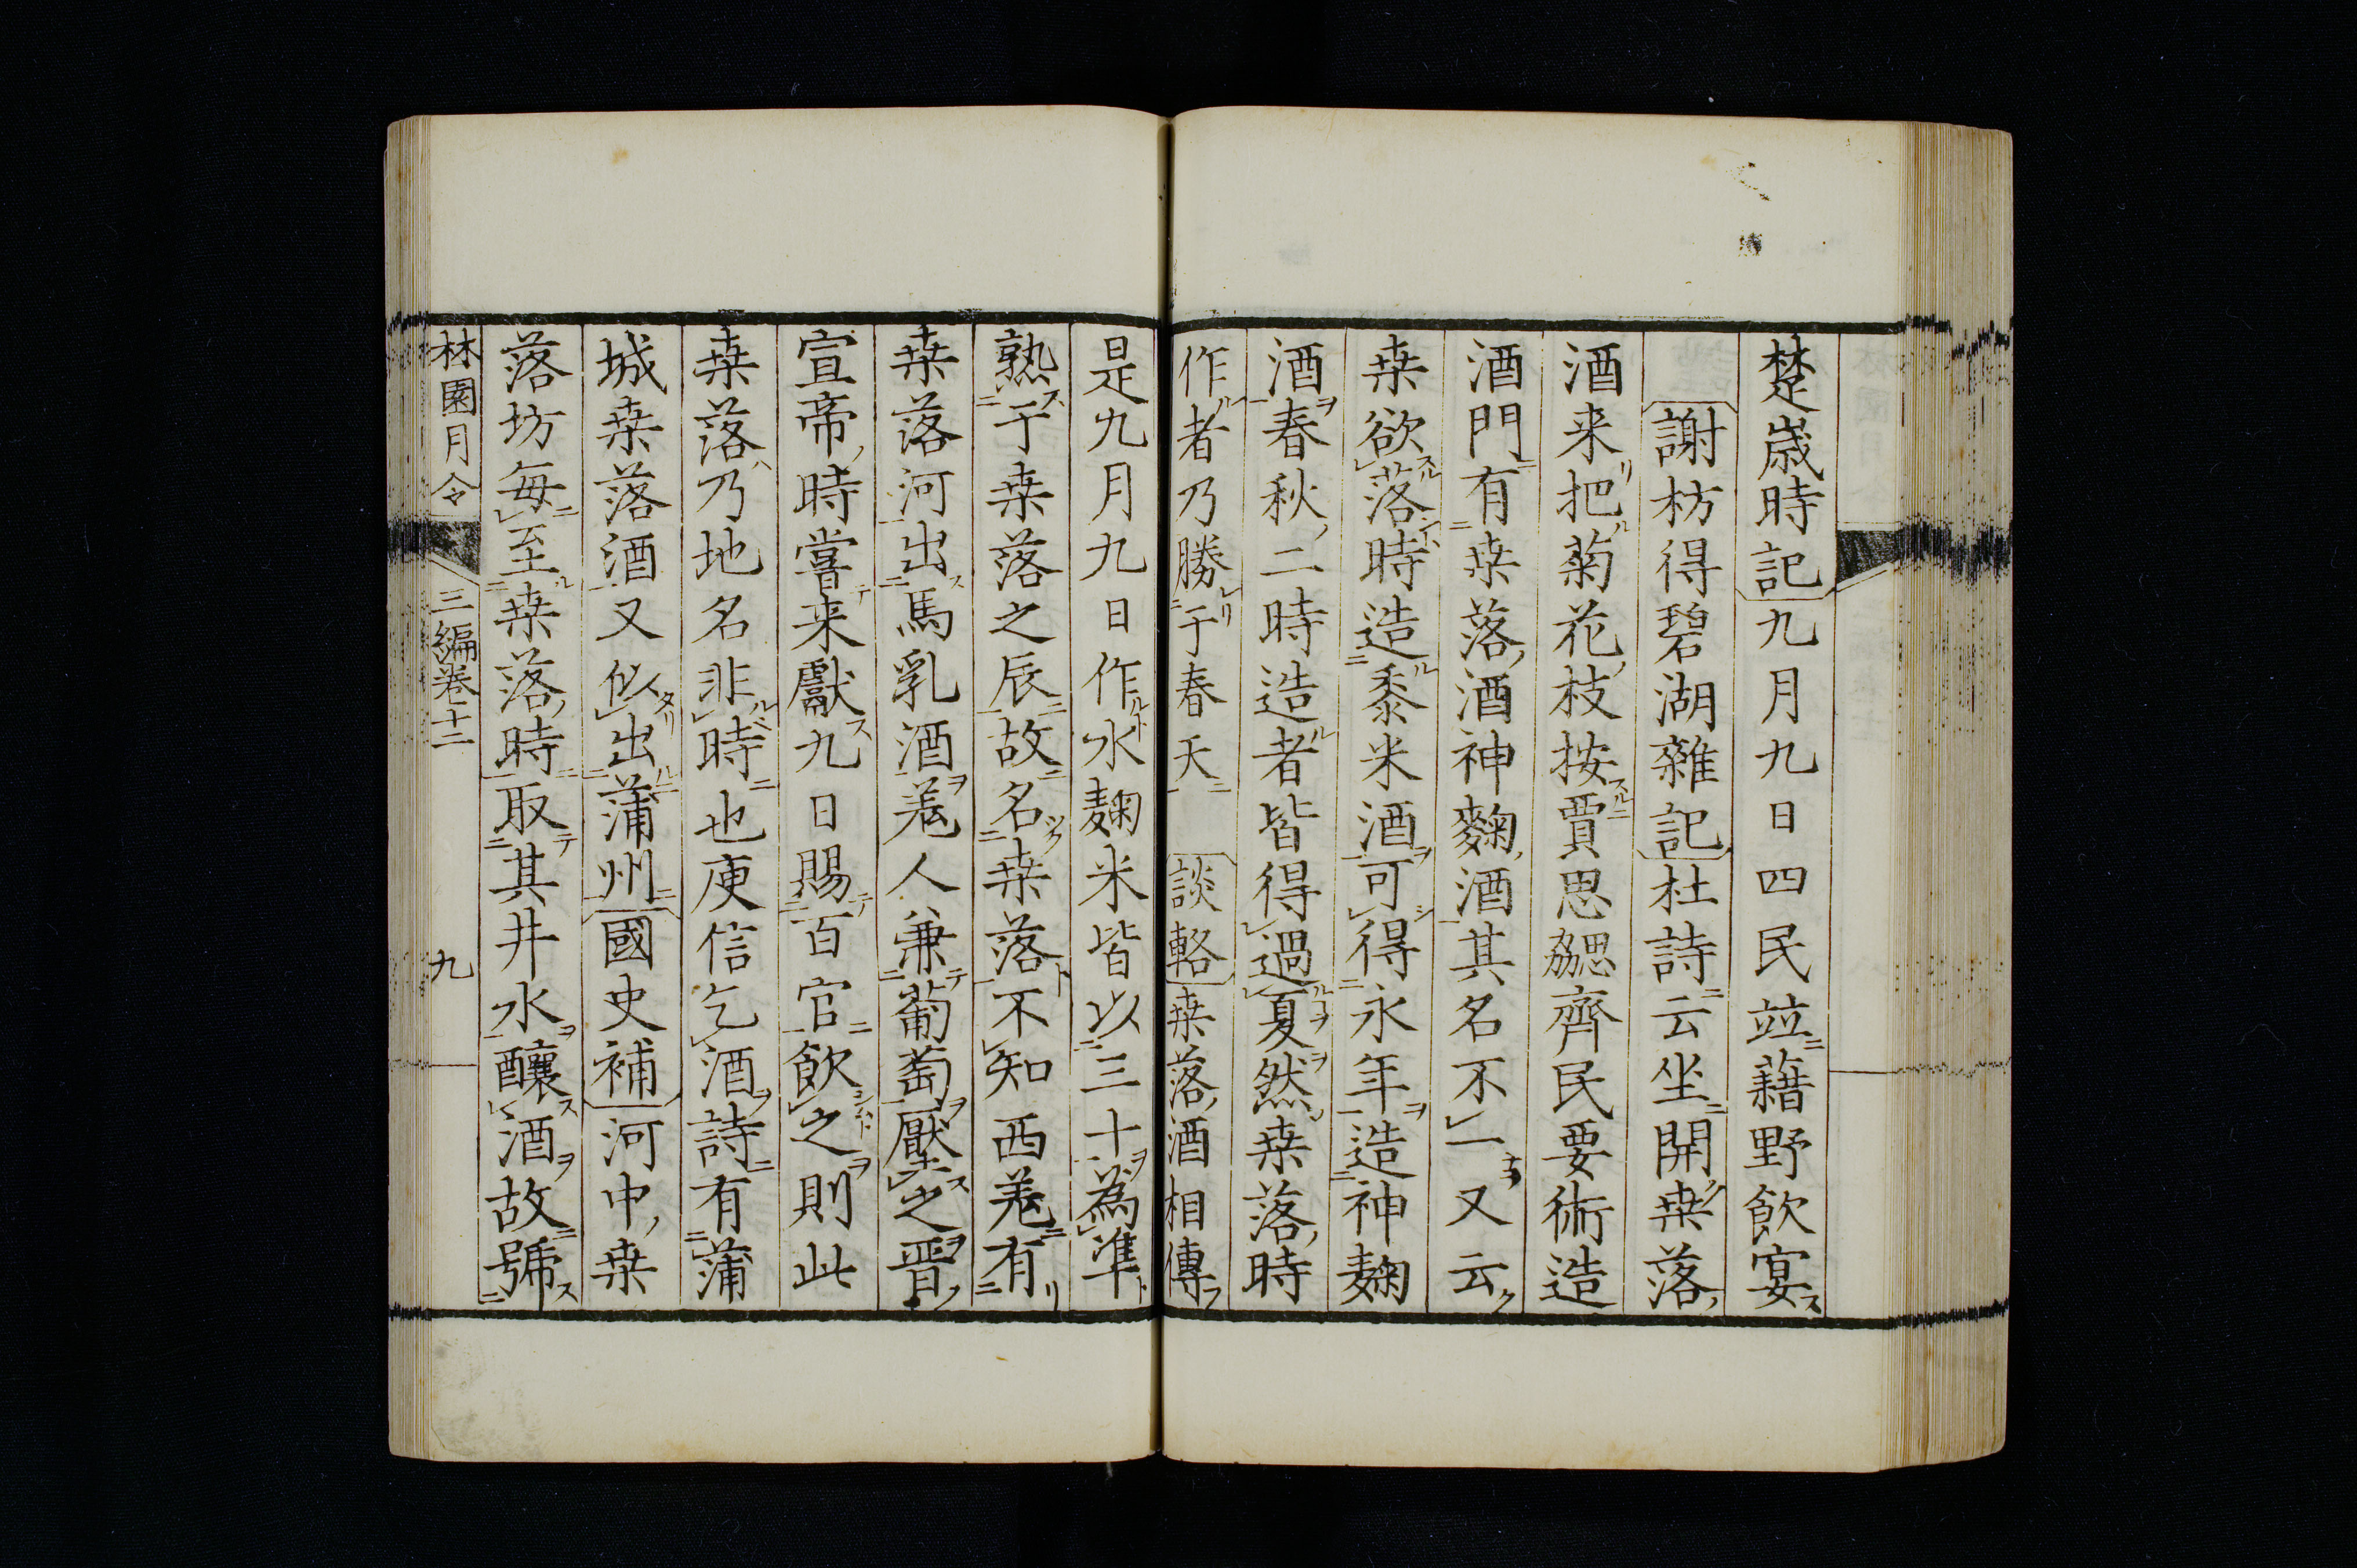 楚歳時記九月九日四民竝藉野飲宴
謝枋得碧湖雜記杜詩云坐開桒落
酒来把菊花枝按賈思勰齊民要術造
酒門有桒落酒神麴酒其名不一又云
桒欲落時造黍米酒可得永年造神麹
酒春秋二時造者皆得過夏然桒落時
作者乃勝于春天 談輅桒落酒相傳
是九月九日作水麹米皆以三十為準
熟于桒落之辰故名桒落不知西羗有
桒落河出馬乳酒羗人兼葡萄壓之晋
宣帝時嘗来獻九日賜百官飲之則此
桒落乃地名非時也庾信乞酒詩有蒲
城桒落酒又似出蒲州國史補河中桒
落坊毎至桒落時取其井水釀酒故號
林園月令 三編卷十二 九